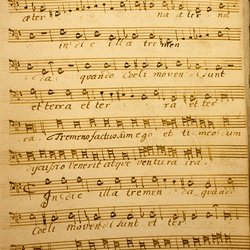 æter na æter na
in die illa tremen
da. quando Coeli movendi sunt
et terra et ter ra et ter
ra. Tremens factus sum ego et timeo dum
discussio venerit atque ventura ira.
In die illa tremenda quando
Coeli movendi sunt et ter